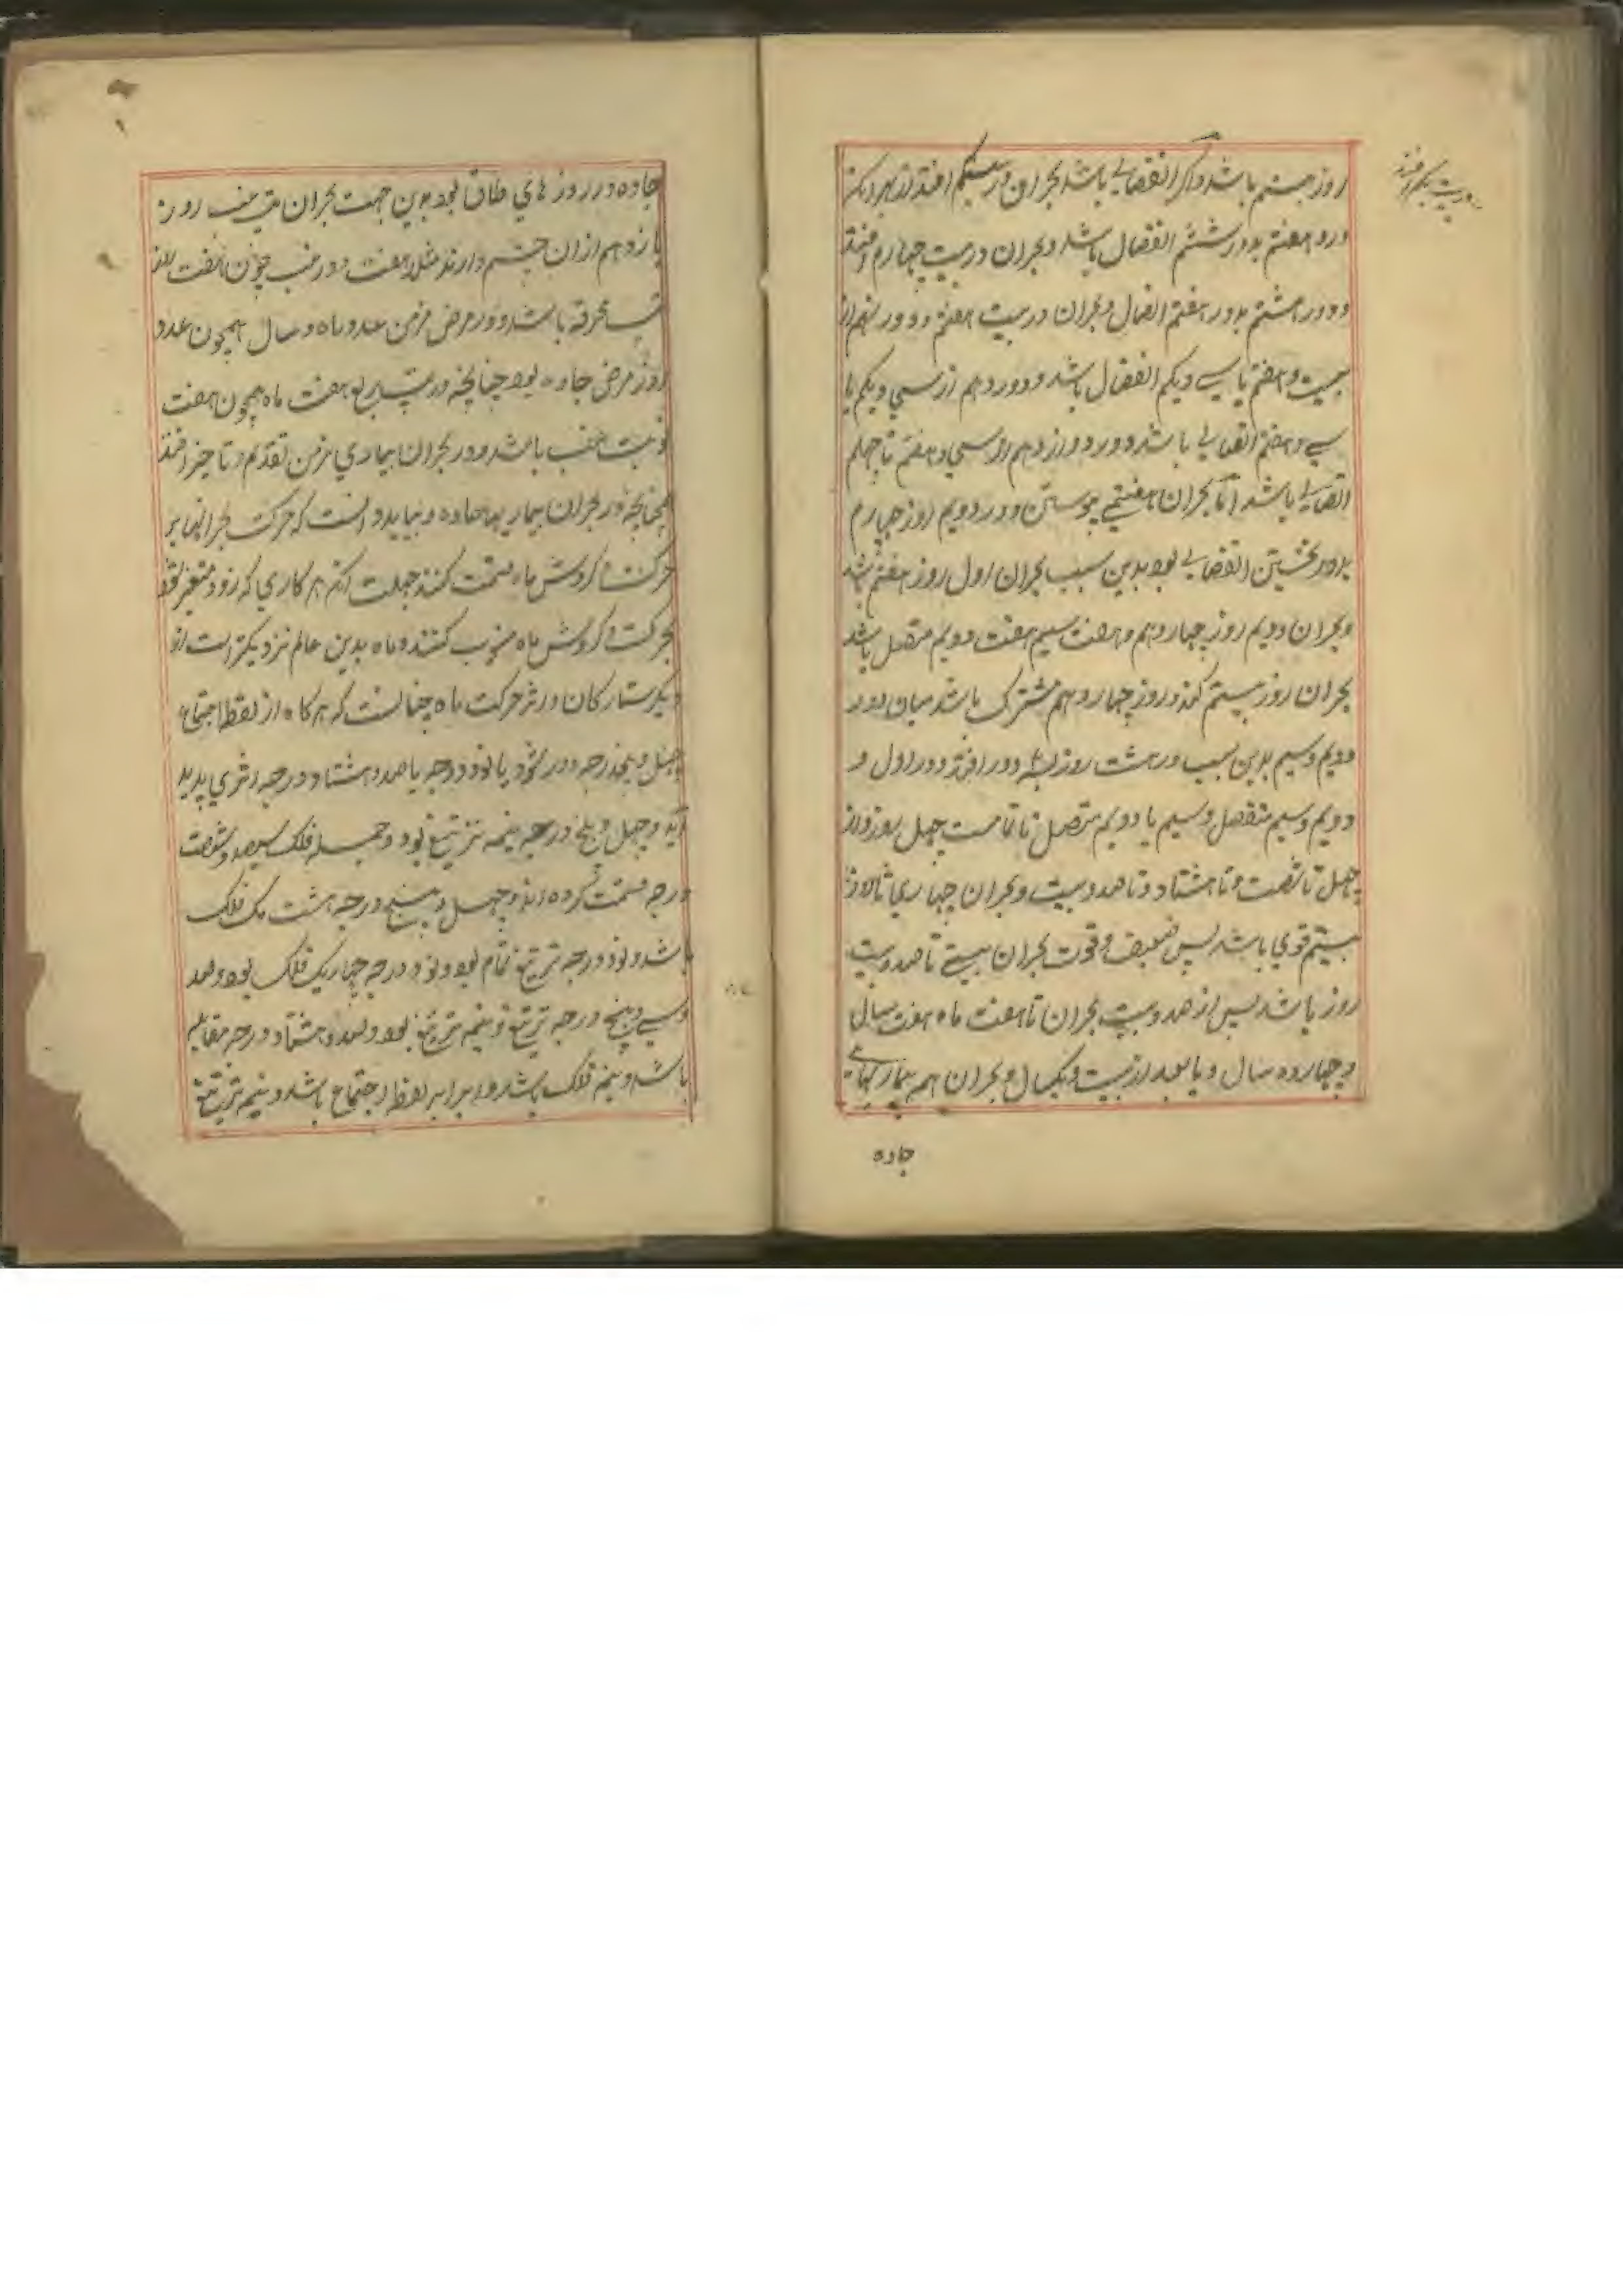 روز بیستم باشد و اگر انفصالی باشد بحران در بیست یکم افتد از بهر آنکه
در بیست یکم افتد
دور هفتم بدور ششم انفصال باشد و بحران در بیست چهارم افتد
و دور هشتم بدور هفتم اتصال و بحران در بیست هفتم و دور نهم از
بیست و هفتم تا سی و یکم انفصال باشد و دور دهم از سی و یکم تا
سی و هفتم اتصالی باشد و دور دوازدهم از سی و هفتم تا چهلم
اتصالی باشد اما بحران هفتمی پیوستن دور دویم روز چهارم
بدور نخستین انفصالی بود بدین سبب بحران اول روز هفتم باشد
و بحران دویم روز چهاردهم و هفت سیم هفت دویم متصل باشد
بحران روز بیستم کند و روز چهاردهم مشترک باشد میان دور
دویم و سیم بدین سبب در بیست روز سه دور افتد دور اول و
دویم و سیم منفصل و سیم با دویم متصل تا تمامت چهل روز و از
چهل تا شصت و تا هشتاد و تا صد و بیست و بحران چهاری تا روز
بیستم قوی باشد پس ضعیف و قوت بحران بیستی تا صد و بیست
روز باشد پس از صد و بیست بحران تا هفت ماه هفت سال
و چهارده سال و یا بعد از بیست و یکسال و بحران هم بیماریهای
حاده
حاده در روزهای طاق بود بدین جهت بحران تب غب روز
یازدهم از آن چشم دارند مثلا هفت دور غب چون هفت روز
تب محرقه باشد و در مرض مزمن عدد ماه و سال همچون عدد
روز مرض حاده بود چنانچه در تب ربع هفت ماه همچون هفت
نوبت غب باشد و در بحران بیماری مزمن تقدیم و تاخیر افتد
چنانچه در بحران بیماریها حاده و بباید دانست که حرکت بحرانها بر
حرکت و گردش ماه قسمت کنند جهت آنکه هر کاری که زود متغیر شود
بحرکت و گردش ماه منسوب کنند و ماه بدین عالم نزدیکتر است از
دیگر ستارگان و اثر حرکت ماه چنانست که هر گاه از نقطه اجتماع
چهل و پنج درجه دور شود یا نود درجه یا صد و هشتاد درجه اثری پدید
آید و چهل و پنج درجه نیمه تربیع بود و جمله فلک سیصد و شصت
درجه قسمت کرده اند و چهل و پنج درجه هشت یک فلک
باشد و نود درجه تربیع تمام بود و نود درجه چهار یک فلک بود و صد
و سی و پنج درجه تربیع و نیمه تربیع بود و صد و هشتاد درجه مقابله
باشد و نیمه فلک باشد و برابر نقطه اجتماع باشد و نیم تربیع